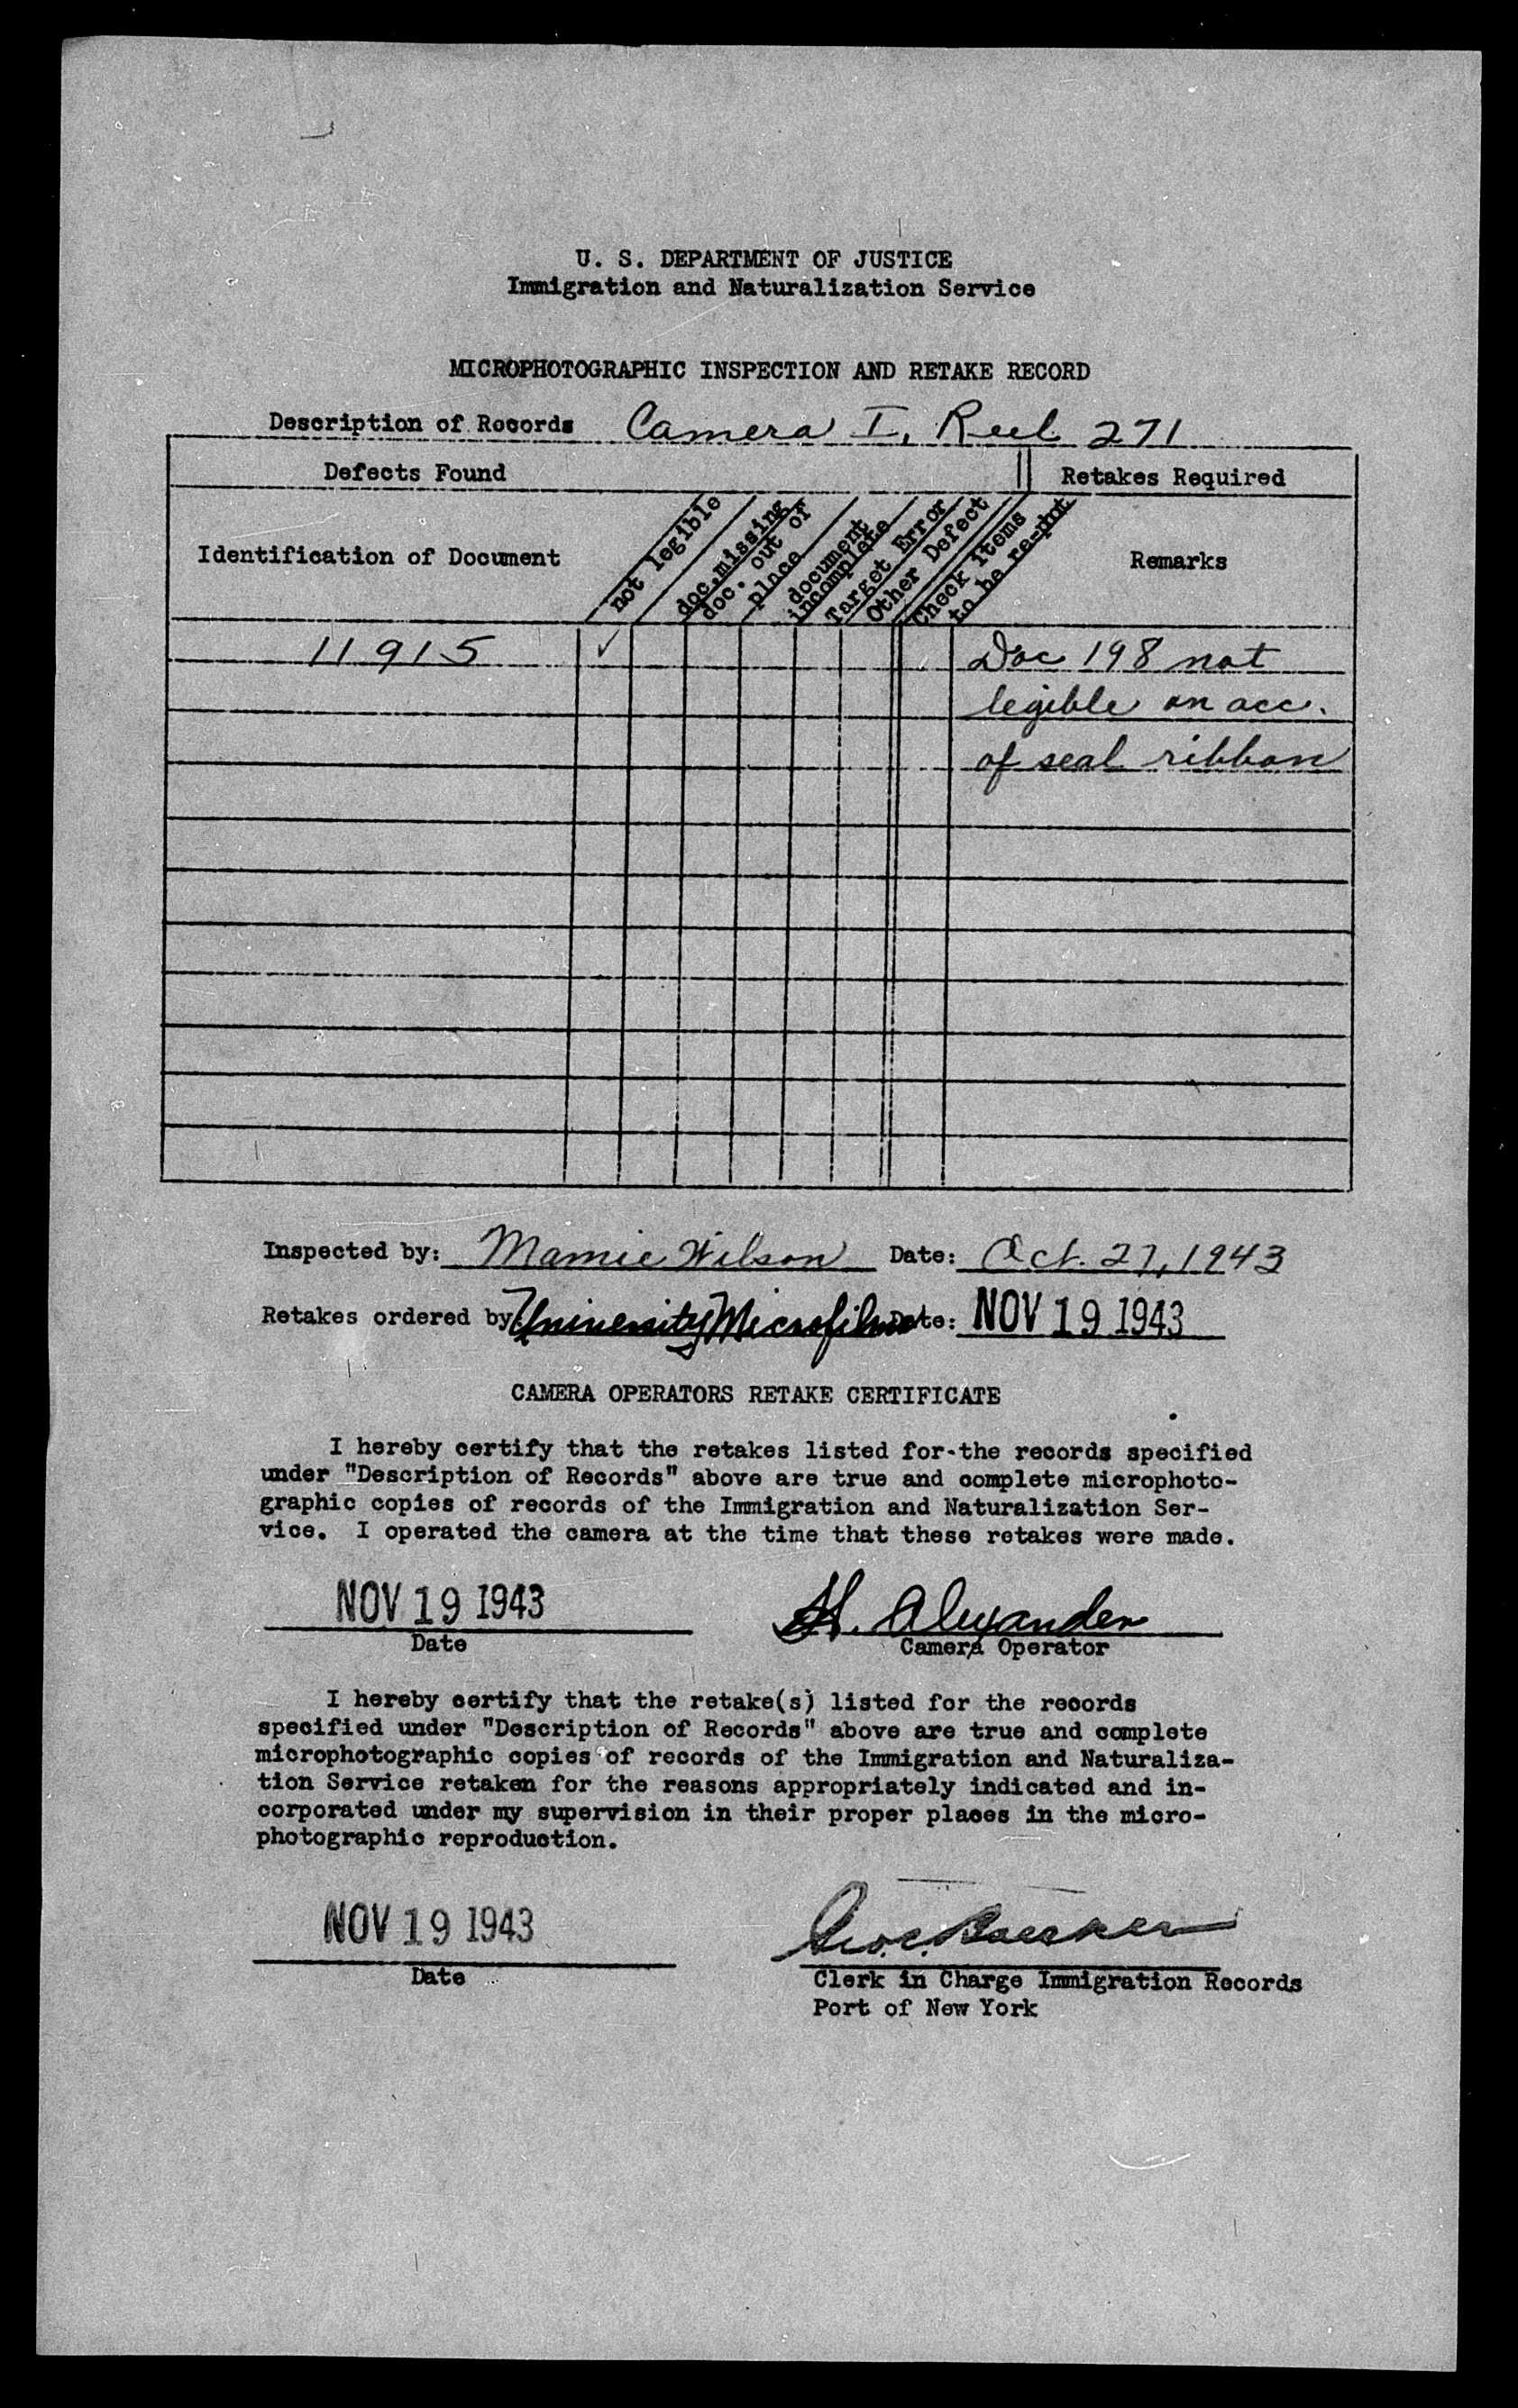 U. S. DEPARTMENT OF JUSTICE
Immigration and Naturalization Service
MICROPHOTOGRAPHIC INSPECTION AND RETAKE RECORD
Description of Records Camera I, Reel 271
Defects Found Retakes Required
Identification of Document not legible doc. missing doc. out of place document incomplete Target Error Other Defect Check items to be re-phot Remarks
11915 ✓ Doc 198 not
legible on acc.
of seal ribbon
Inspected by: Mamie Wilson Date: Oct. 27, 1943
Retakes ordered by University Microfilms Date: NOV 19 1943
CAMERA OPERATORS RETAKE CERTIFICATE
I hereby certify that the retakes listed for the records specified
under "Description of Records" above are true and complete microphoto-
graphic copies of records of the Immigration and Naturalization Ser-
vice. I operated the camera at the time that these retakes were made.
NOV 19 1943 H. Alexander
Date Camera Operator
I hereby certify that the retake(s) listed for the records
specified under "Description of Records" above are true and complete
microphotographic copies of records of the Immigration and Naturaliza-
tion Service retaken for the reasons appropriately indicated and in-
corporated under my supervision in their proper places in the micro-
photographic reproduction.
NOV 19 1943 Geo. C.
Date Clerk in Charge Immigration Records
Port of New York